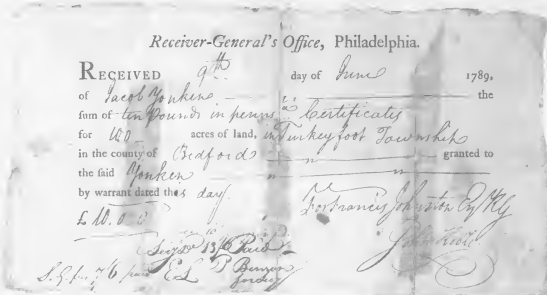 Receiver-General's Office, Philadelphia.
RECEIVED 9th day of June 1789,
of Jacob Yonken the
sum of ten Pounds in penns. Certificates
for 100 acres of land, in Turkey foot Township
in the county of Bedford granted to
the said Yonken
by warrant dated this day.
£ 10.0.0 For Francis Johnston Esq
Paid